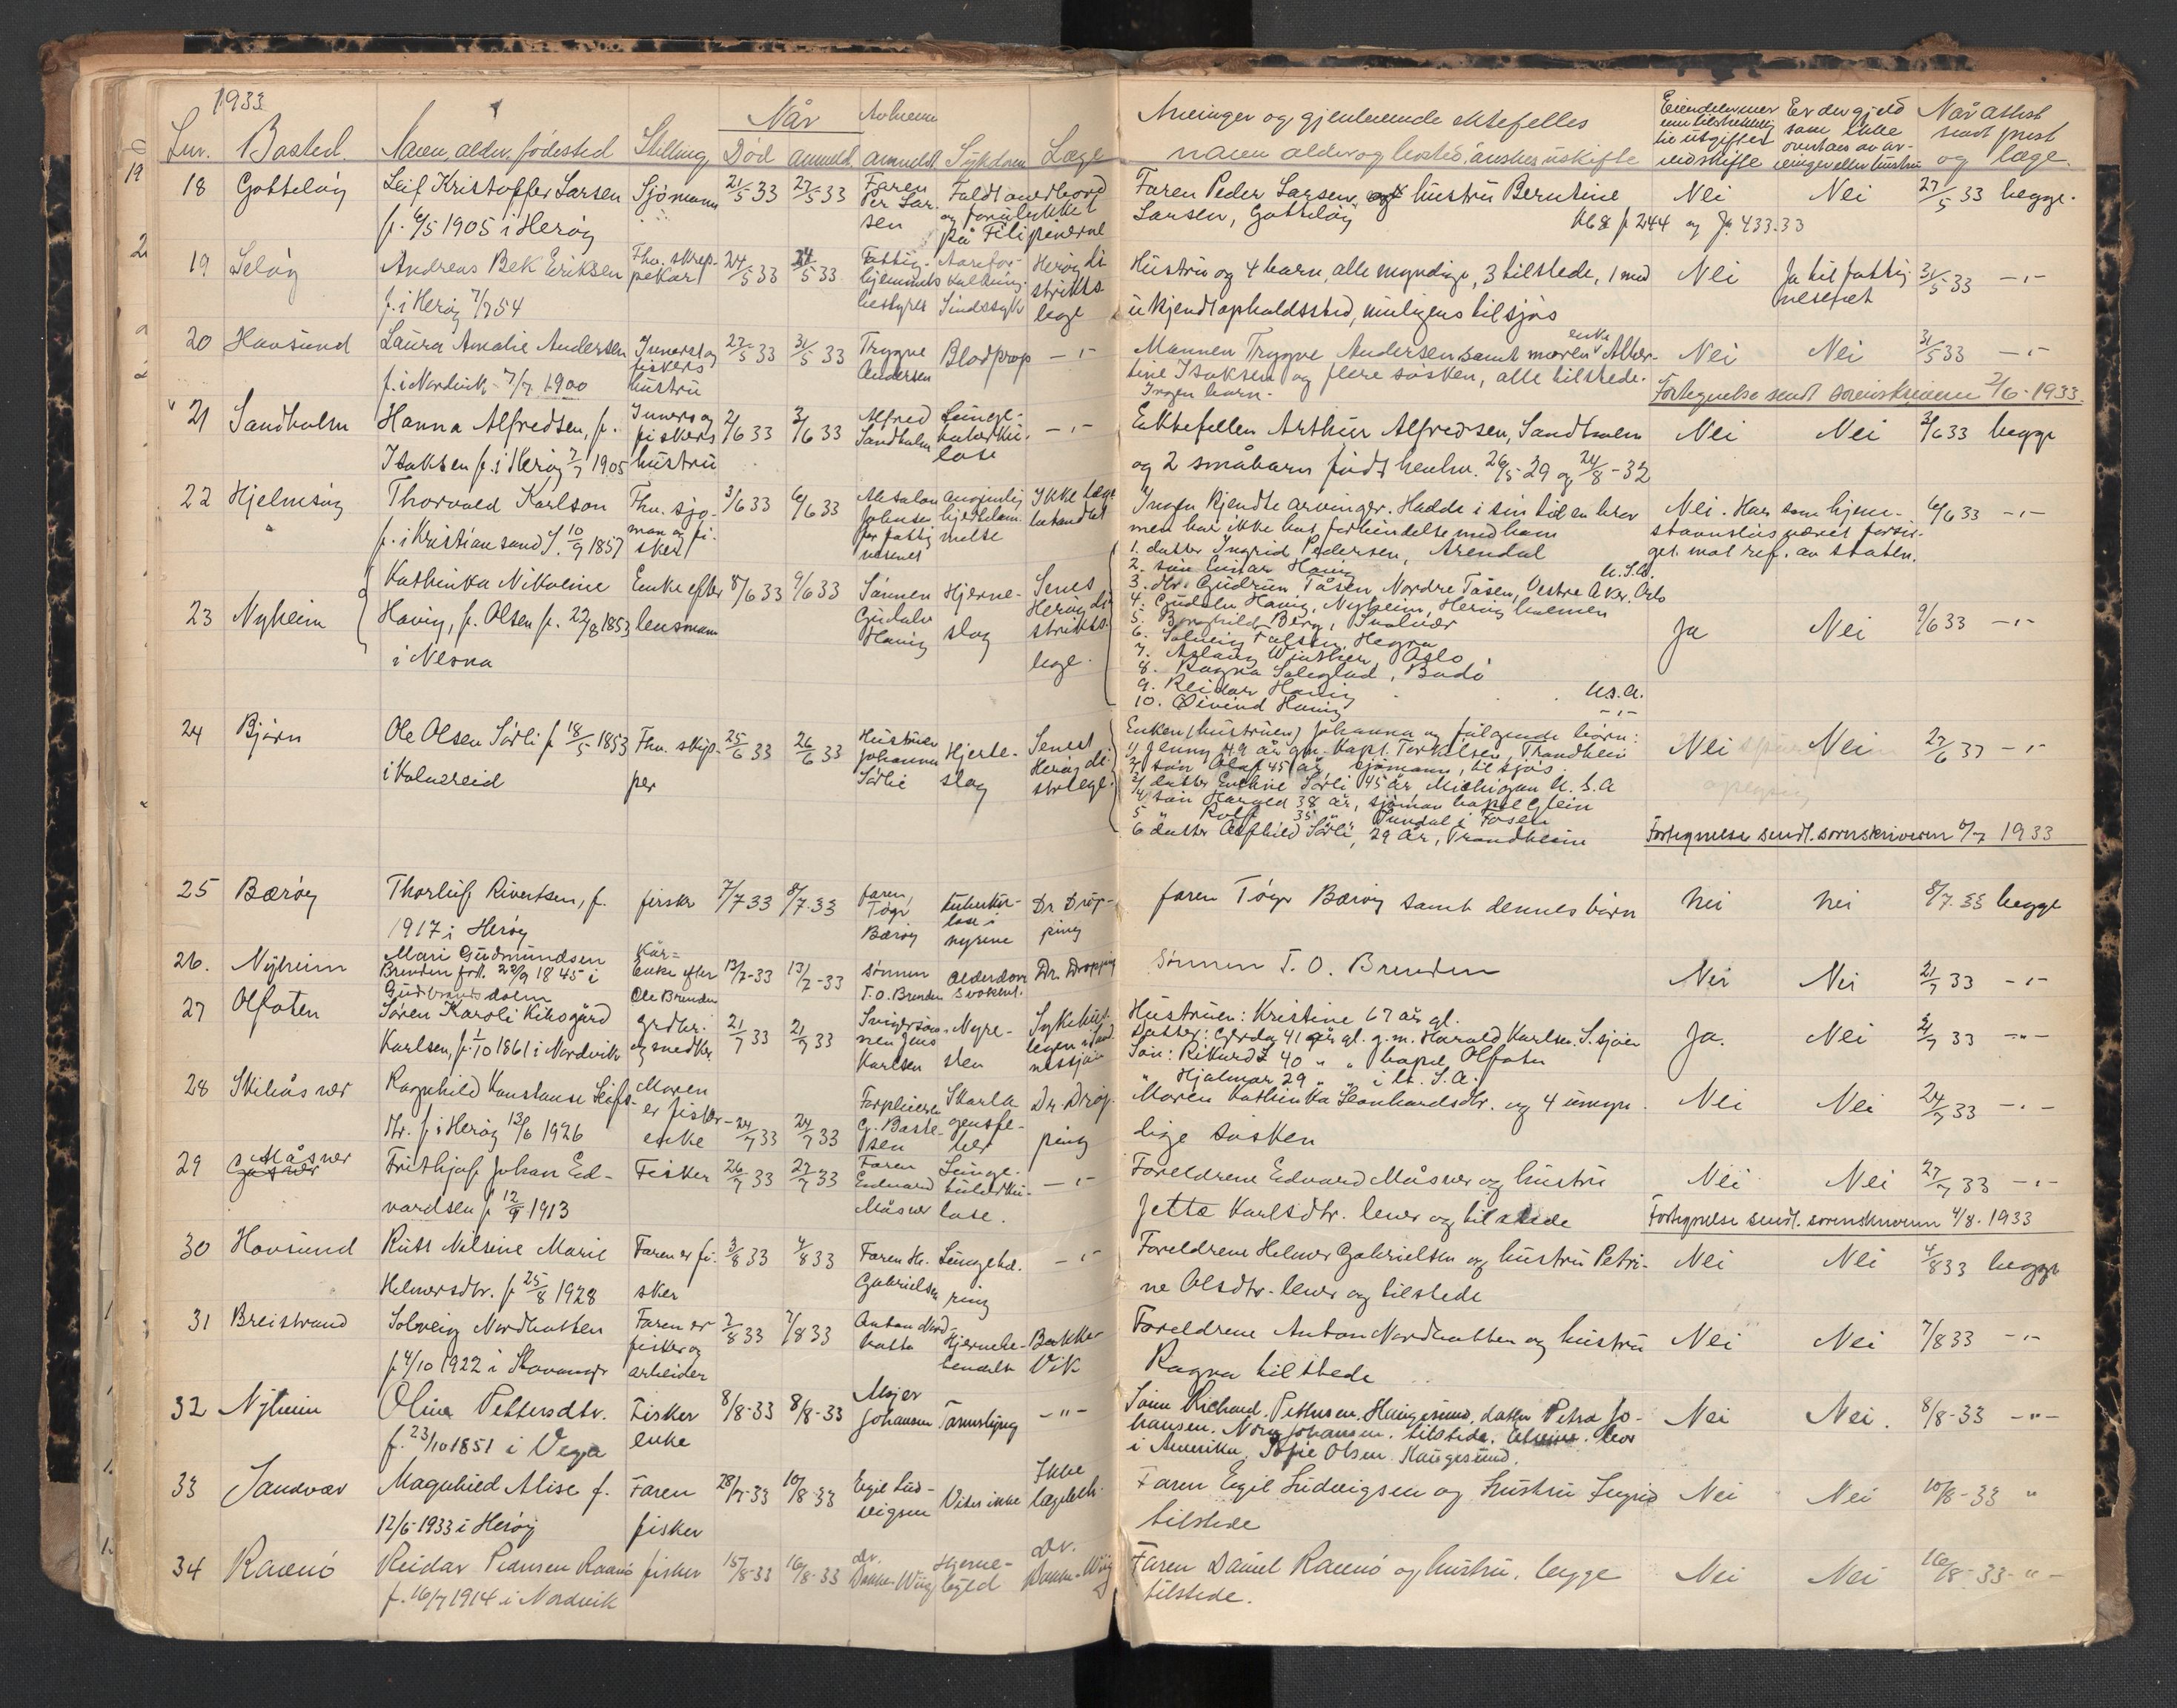 1933
Når Av hvem
Lnr. Bosted. Navn, alder, fødested Stilling Død anmeldt anmeldt Sykdom Læge
Arvinger og gjenlevende ektefelles
navn alder og bosted, ønskes uskifte
Eiendeler mer enn tilstrekkelig til utgifter ved skifte
Er der gjeld som ikke overtaes av arvinger eller hustru
Når attest sendt prest og læge.
18 Gåsteløy Leif Kristoffer Larsen Sjömann 21/5 33 27/5 33 Faren Per Larsen Faldt overbord og forulykket på Filipinerne
f. 6/5 1905 i Herøy
Faren Peder Larsen og hustru Berntine Nei Nei 27/5 33 begge.
Larsen, Gåsteløy f 244 og J. 433.33
19 Seløy Andreas Bek Eriksen Fhv. skreppekar 24/5 33 24/5 33 Fattighjemmets bestyrer Aareforkalkning. Sindssyk Herøy distriktslæge
f. i Herøy 7/7 54
Hustru og 4 barn, alle myndige, 3 tilstede, 1 med Nei Ja til fattigvesenet 31/5 33 -"-
ukjendt opholdssted, muligens tilsjøs
20 Hovsund Laura Amalie Andersen Innerst og fiskers hustru 27/5 33 31/5 33 Trygve Andersen Blodprop -"-
f. i Nordvik 7/7 1900
Mannen Trygve Andersen samt moren enke Albertine Isaksen og flere søsken, alle tilstede. Nei Nei 31/5 33 -"-
Ingen barn.
Fortegnelse sendt sorenskriveren 2/6 - 1933.
21 Sandholm Hanna Alfredsen, f. Inners og fiskers hustru 2/6 33 3/6 33 Alfred Sandholm Lungetuberkulose -"-
Isaksen f. i Herøy 7/7 1905
Ektefellen Arthur Alfredsen, Sandholm Nei Nei 3/6 33 begge
og 2 småbarn født henhv. 26/5-29 og 24/8-32
22 Hjelmsøy Thorvald Karlson Fhv. sjøman og fisker 3/6 33 6/6 33 Absalon Johnsen for fattigvesenet angivelig hjertelammelse Ikke læge behandlet
f. i Kristiansand S. 10/9 1857
Ingen kjendte arvinger. Hadde i sin tid en bror Nei. Har som hjem- 6/6 33 -"-
men har ikke hat forbindelse med ham stavnsløs været forsør-
get mot ref. av staten.
23 Nyheim Kathinka Nikoline Enke efter lensmann 8/6 33 9/6 33 Sønnen Gudolv Havig Hjerneslag Senest Herøy distriktslæge.
Havig, f. Olsen f. 22/8 1853
i Nesna
1. datter Ingrid Pedersen, Arendal
2. søn Einar Havig U.S.A.
3. dtr. Gudrun Tåsen, Nordre Tåsen, Vestre Aker. Oslo
4. Gudolv Havig, Nyheim, Herøyholmen
5. Borghild Berg, Svolvær
6. Solveig Falsen, Hegra
7. Aslaug Winther, Oslo
8. Ragna Soleglad, Bodö
9. Reidar Havig U.S.A.
10. Øivind Havig -"-
Ja Nei 9/6 33 -"-
24 Bjørn Ole Olsen Sörli f 18/5 1853 Fhv. skipper 25/6 33 26/6 33 Hustruen Johanna Sörlie Hjerteslag Senest Herøy distr. læge.
i Kolvereid
Enken (hustruen) Johanna og følgende börn: Nei Nei 27/6 33 -"-
1) Jenny 49 år gm. Kapt. Torkilsen, Trondheim
2 søn Olaf 45 år sjömann, til sjøs
3/ datter Eveline Sörli 45 år Michigan U.S.A
4/ søn Harald 38 år, sjöman
5 " Rolf 35 " Sundal i Fosen
6 datter Alfhild Sörli, 29 år, Trondheim
Fortegnelse sendt. sorenskriveren 6/7 1933
25 Bærøy Thorleif Rivertsen, f. fisker 7/7 33 8/7.33 faren, Töger Bærøy tuberkulose i nyrene Dr Dröpping
1917 i Herøy
faren Töger Bærøy samt dennes børn nei nei 8/7. 33 begge
26. Nyheim Mari Gudmundsen Brenden født. 22/9 1845 i Gudbrandsdalen Kår= Enke efter Ole Brenden 12/7-33 13/7-33 Sønnen T.O. Brenden alderdomssvakhet. Dr. Dröpping
Sønnen T. O. Brenden Nei Nei 21/7 33 -"-
27 Offoten Søren Karoli Kilsgård grdbr. og snedker 21/7 33 21/7 33 Svigersönnen Jens Karlsen Nyresten Sykehuslegen i Sandnessjøen
Karlsen, f. 1/10 1861 i Nordvik
Hustruen: Kristine 67 år gl.
Datter: Gerda 41 år gl. g.m. Harald Karlsen S.sjöen Ja. Nei 21/7 33 -"-
Søn: Rikard 40 " "
" Hjalmar 29 " " i U.S.A.
28 Skibåsvær Ragnhild Konstanse Leifs- Moren er fisker-enke 24/7 33 24/7 33 Forpleieren G. Bastesen Skarlagensfeber Dr. Dröpping
dtr. f i Herøy 12/6 1926
Moren Kathinka Leonhardsdtr. og 4 umyn- Nei Nei 24/7 33 -"-
dige søsken
29 Måsvær Frithjof Johan Ed- Fisker 26/7 33 27/7 33 Faren Edvard Måsvær Lungetuberkulose. -"-
vardsen f 12/9 1913
Foreldrene Edvard Måsvær og hustru Nei Nei 27/7 33 -"-
Jetta Karlsdtr. lever og tilstede Fortegnelse sendt. sorenskriveren 4/8. 1933
30 Hovsund Ruth Nilsine Marie Faren er fisker 3/8 33 4/8 33 Faren H. Gabrielsen Lungebl.ring -"-
Helmersdtr. f 25/8 1928
Foreldrene Helmer Gabrielsen og hustru Petri- Nei Nei 4/8 33 begge
ne Olsdtr. lever og tilstede
31 Breistrand Solveig Nordhatten Faren er fisker og arbeider 7/8 33 7/8 33 Anton Nordhatten Hjernebetendelse Bakke-Vik
f 4/10 1922 i Stavanger
Foreldrene Anton Nordhatten og hustru Nei Nei 7/8 33 -"-
Ragna tilstede
32 Nyheim Olina Pettersdtr. Fisker enke 8/8-33 8/8-33 Meyer Johansen Tarmslyng -"-
f. 23/10 1851 i Vega
Sønn Richard. Pettersen. Haugesund, datter Petra Jo- Nei Nei. 8/8-33 -"-
hansen. Johansen. tilstede. bor
i Amerika, Sofie Olsen. Haugesund.
33 Sandvær Magnhild Alise f. Faren fisker 28/7-33 10/8-33 Egil Ludvigsen Vites ikke Ikke lægebeh.
12/6-1933 i Herøy
Faren Egil Ludvigsen og hustru Ingrid Nei Nei 10/8-33 "
tilstede
34 Ramnö Reidar Pedersen Ramnö fisker 15/8-33 16/8-33 Dr. Bakke-Wiig Hjernebyld Dr. Bakke-Wiig
f. 16/7 1914 i Nordvik
Faren Daniel Ramnö og hustru, begge Nei Nei 16/8-33 -"-
tilstede.